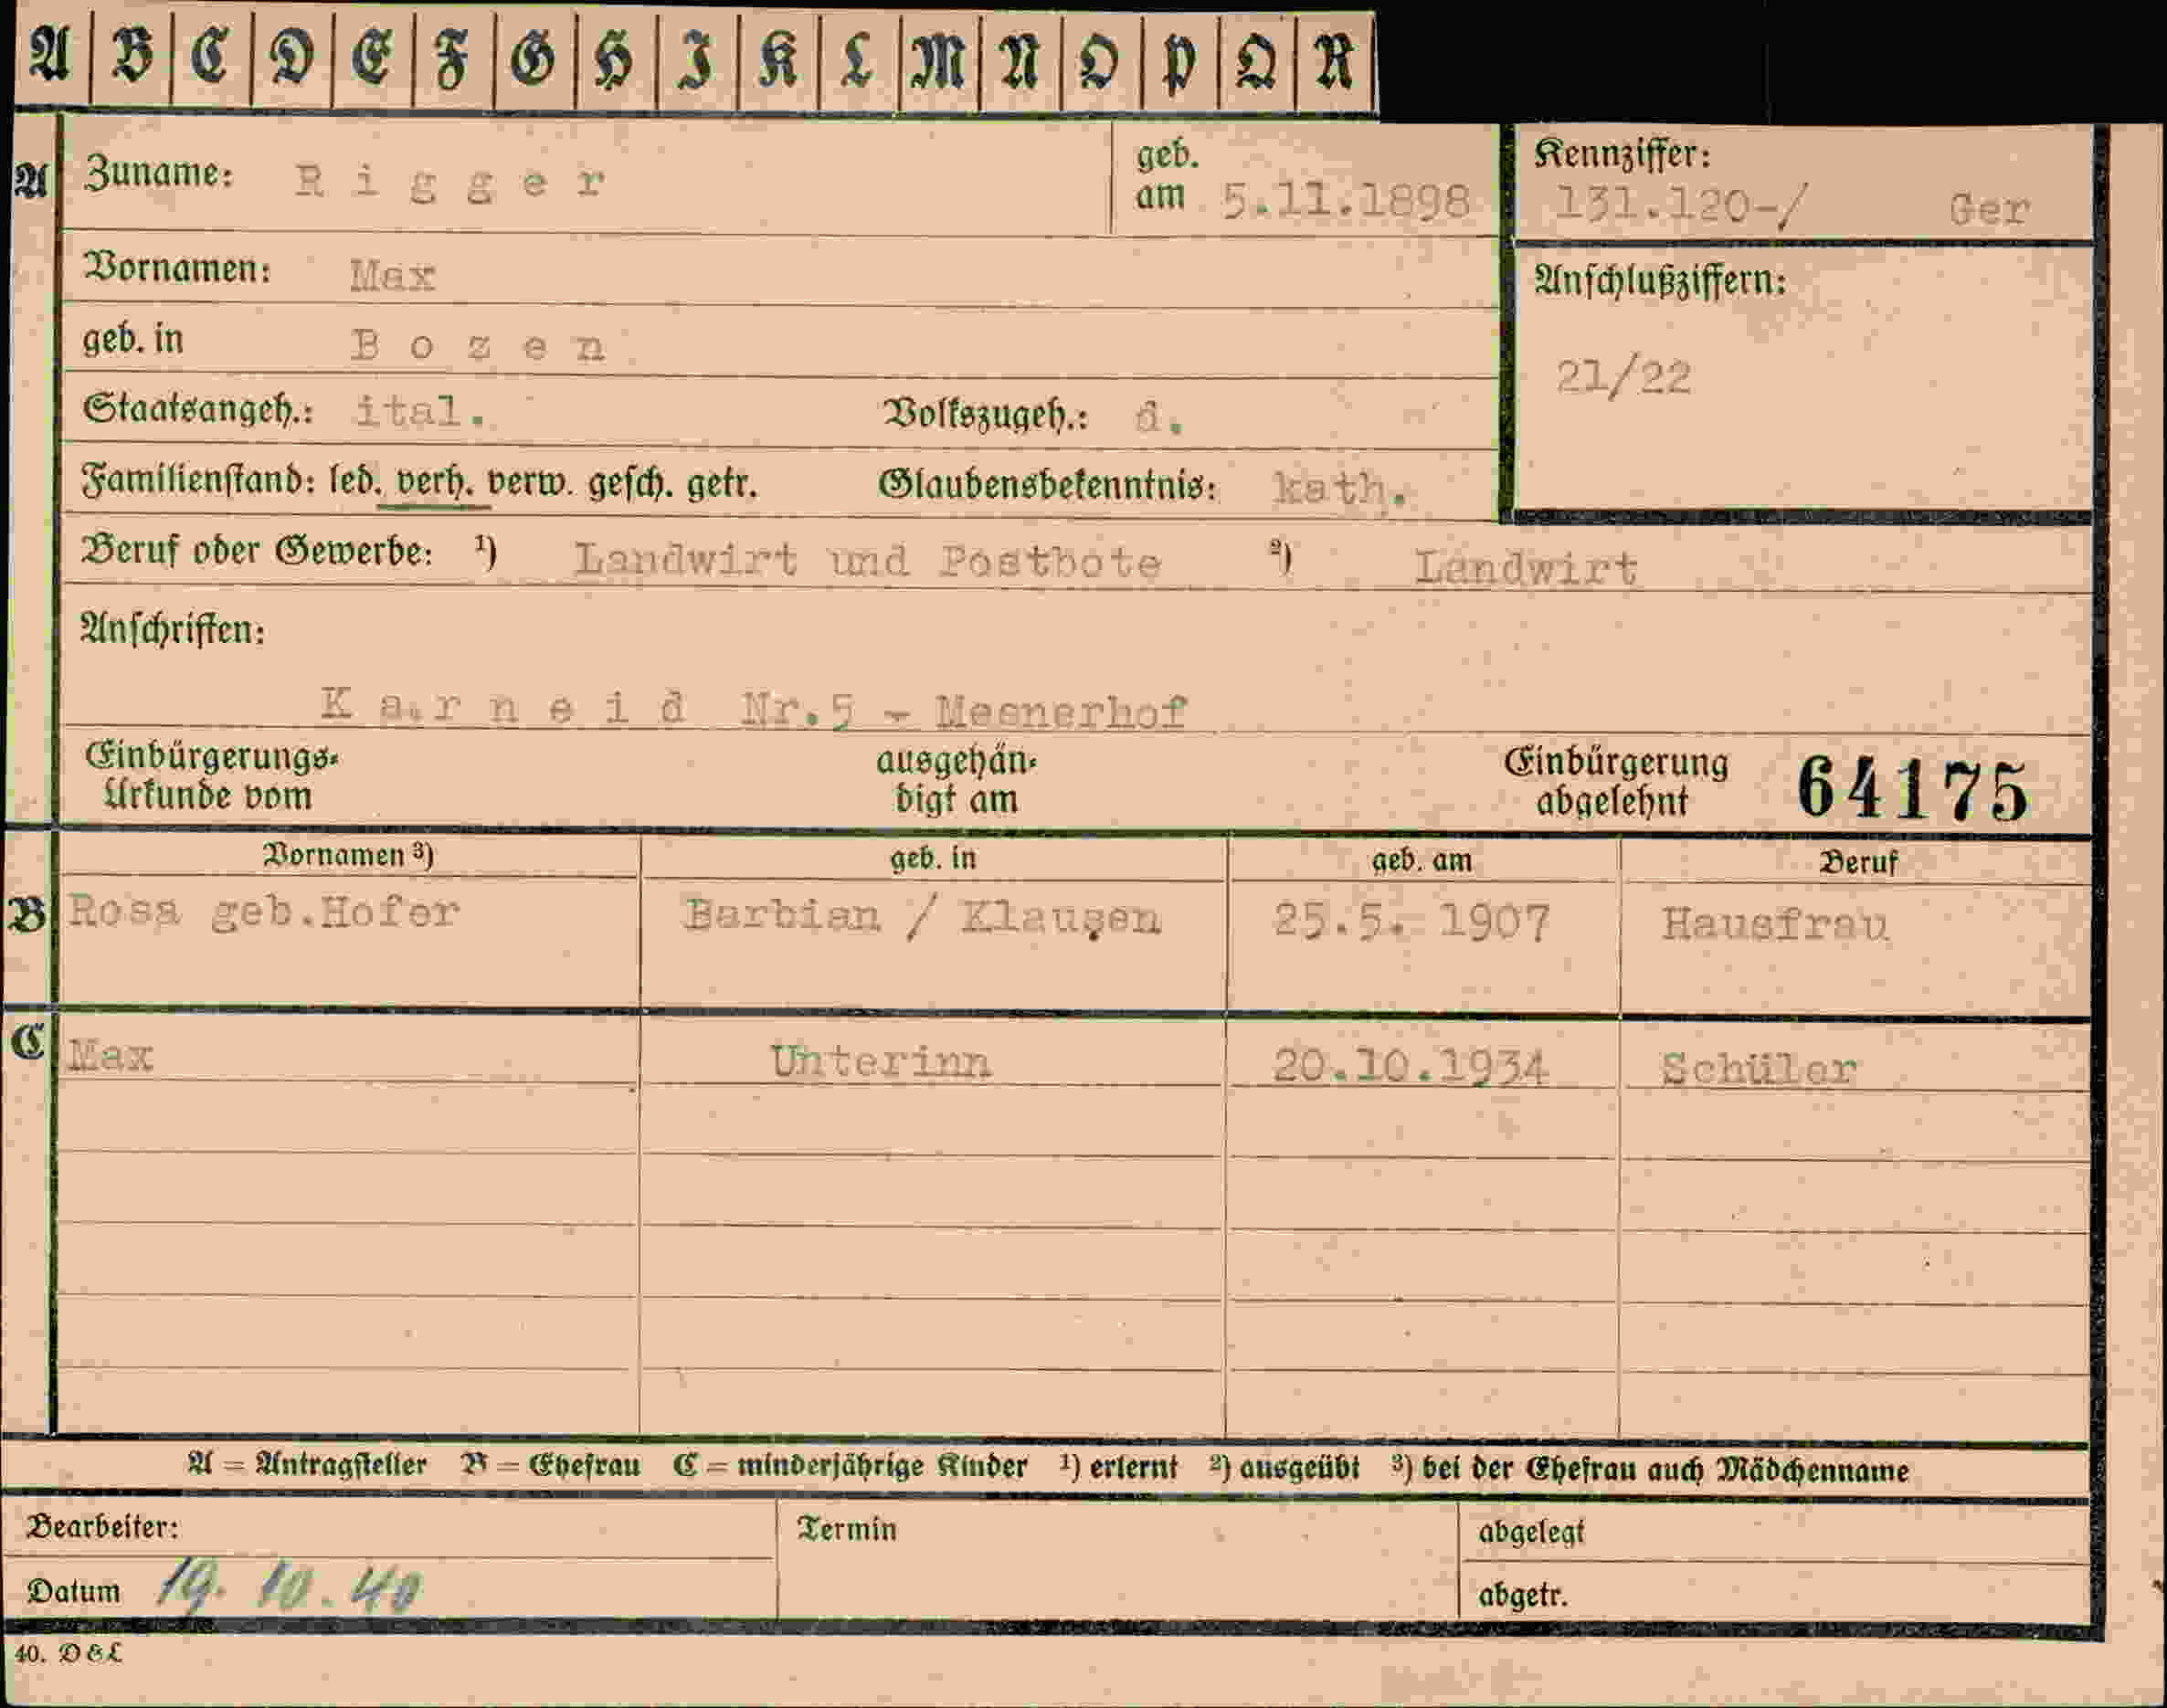 A B C D E F G H I K L M N O P Q R
A Zuname: Rigger geb. am 5.11.1898 Kennziffer: 131.120-/ Ger
Vornamen: Max Anschlußziffern:
geb. in Bozen 21/22
Staatsangeh.: ital. Volkszugeh.: d.
Familienstand: led. verh. verw. gesch. getr. Glaubensbekenntnis: kath.
Beruf oder Gewerbe: ¹) Landwirt und Postbote ²) Landwirt
Anschriften:
Karneid Nr.5 - Mesnerhof
Einbürgerungs- ausgehän- Einbürgerung 64175
Urkunde vom digt am abgelehnt
Vornamen ³) geb. in geb. am Beruf
B Rosa geb.Hofer Barbian / Klausen 25.5. 1907 Hausfrau
C Max Unterinn 20.10.1934 Schüler
A = Antragsteller B = Ehefrau C = minderjährige Kinder ¹) erlernt ²) ausgeübt ³) bei der Ehefrau auch Mädchenname
Bearbeiter: Termin abgelegt
Datum 19. 10. 40 abgetr.
40. D & L